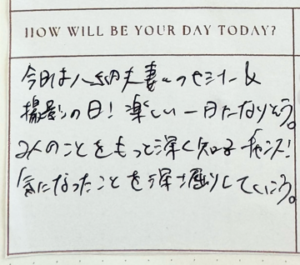 HOW WILL BE YOUR DAY TODAY?
今日は八納夫妻のセミナー&
撮影の日！楽しい一日になりそう。
2人のことをもっと深く知るチャンス！
気になったことを深堀りしていこう。